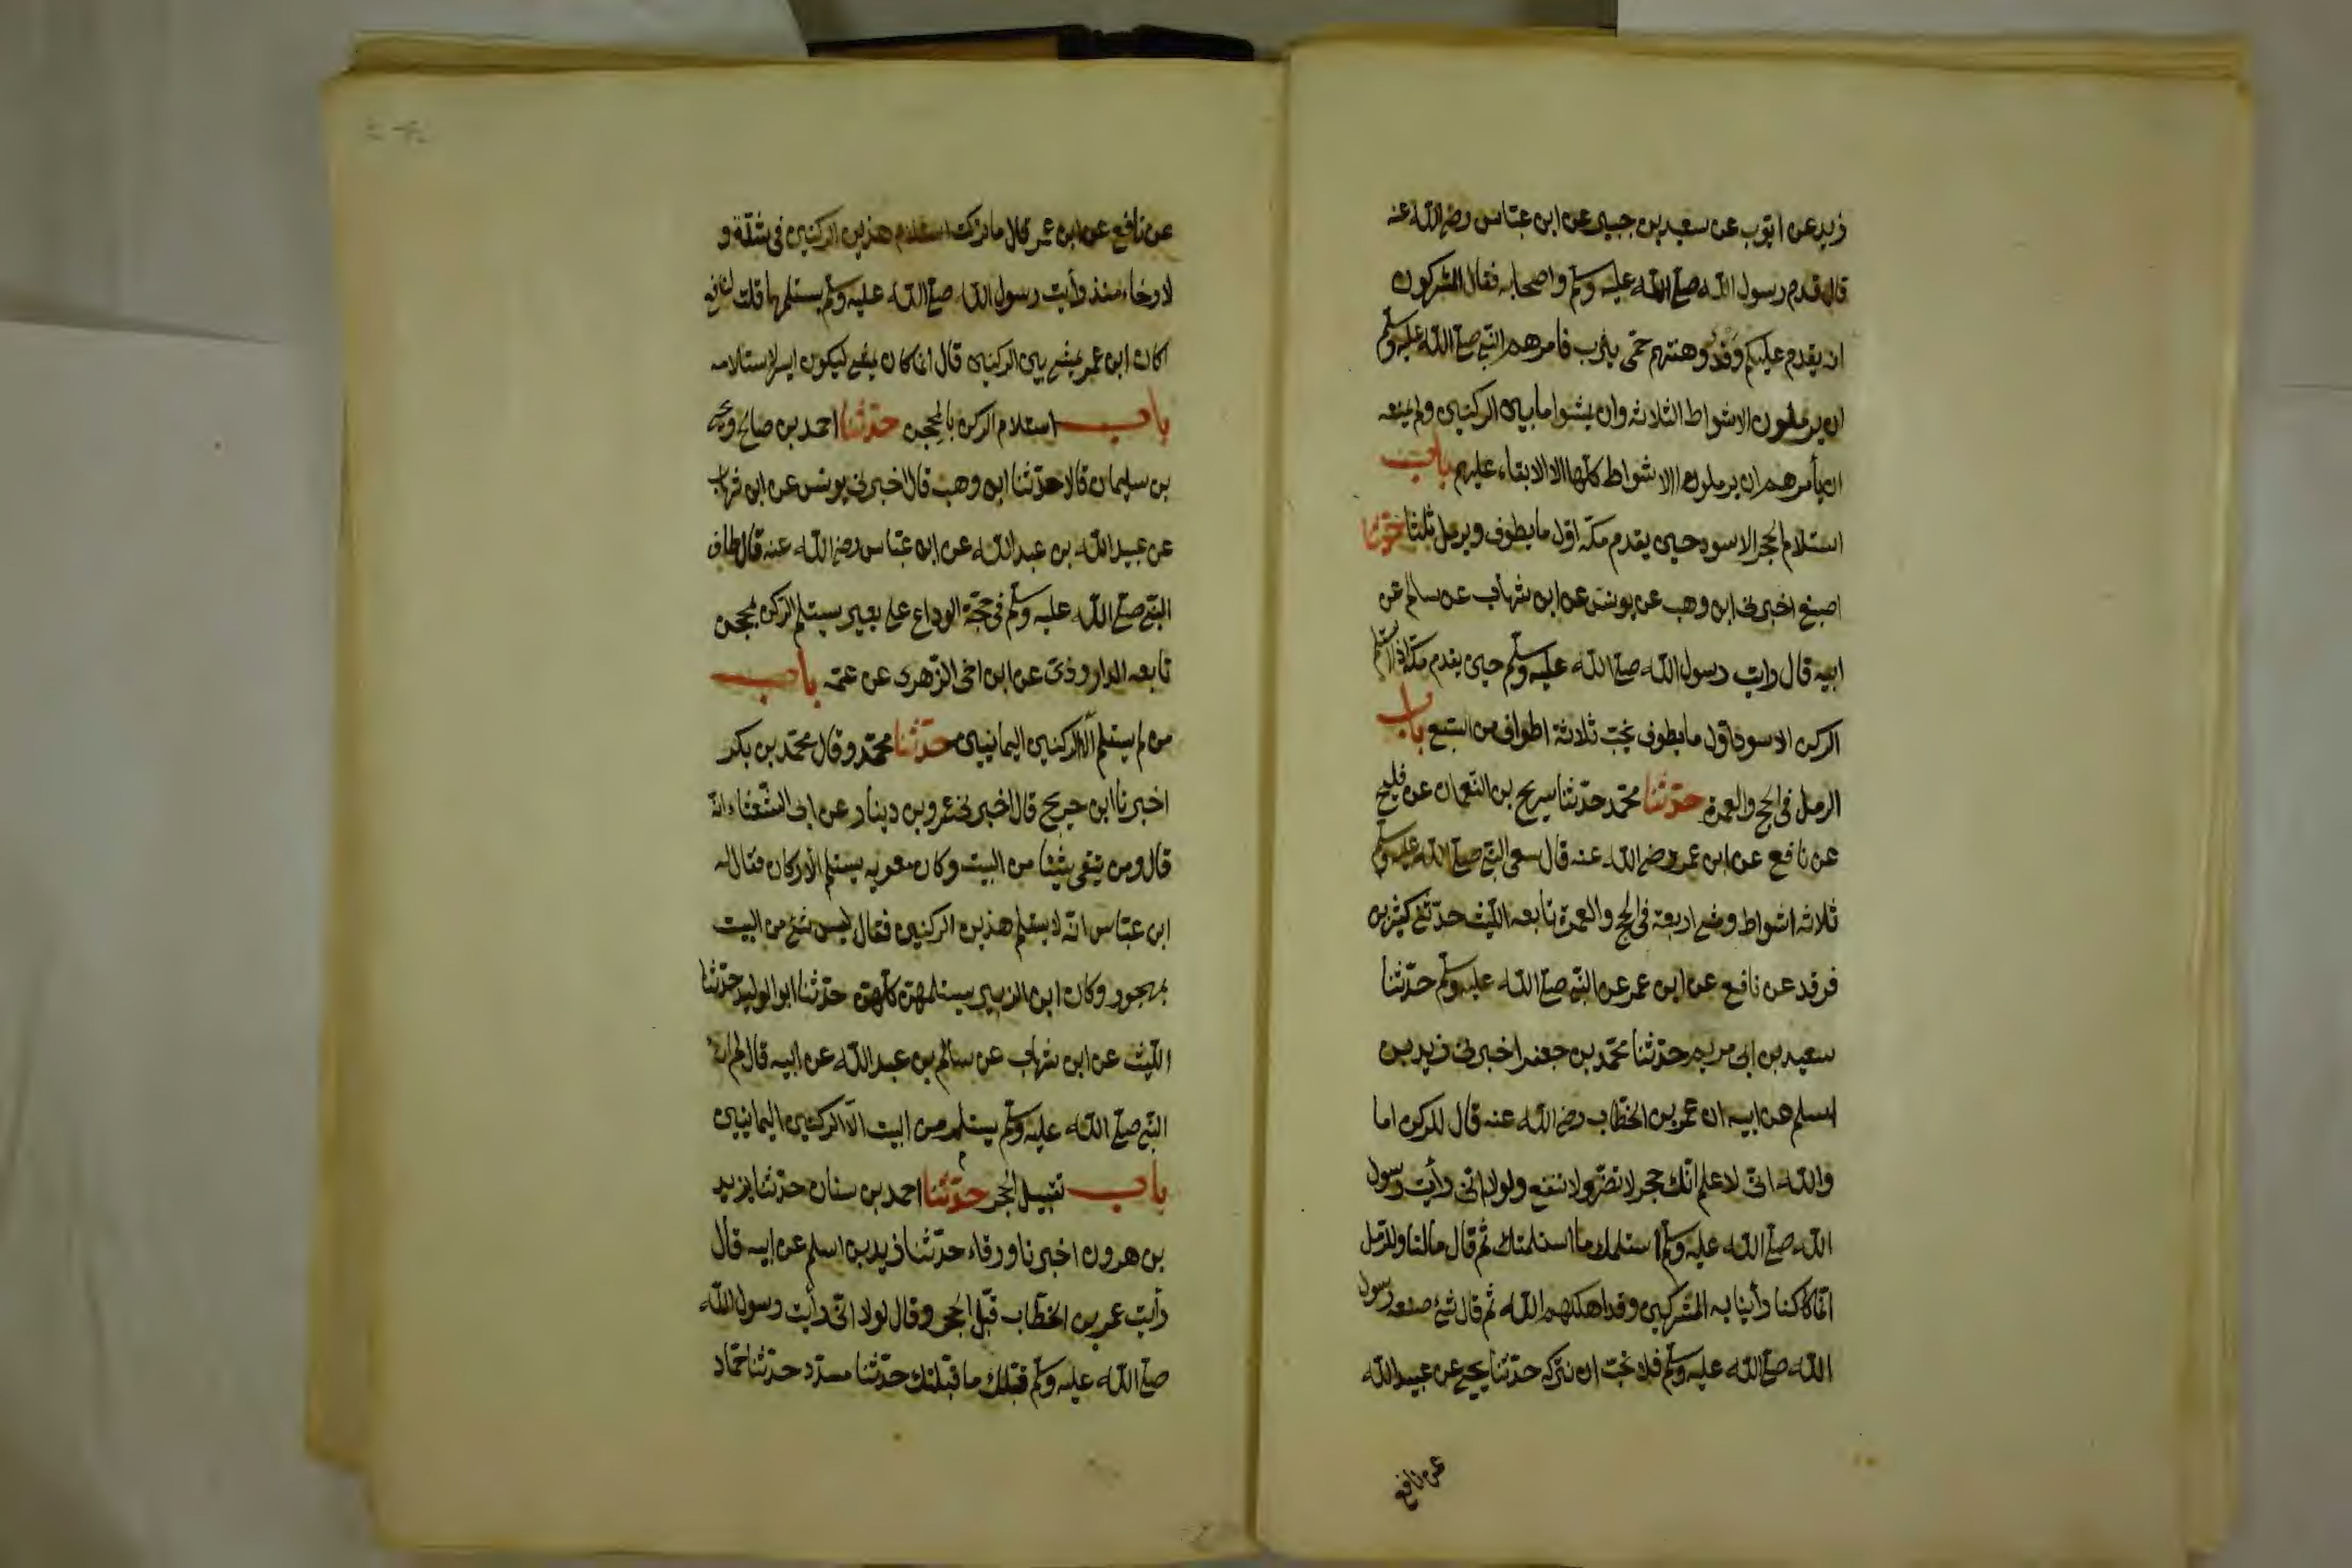 زيد عن ايوب عن سعيد بن جبير عن ابن عباس رضي الله عنه
قال قدم رسول الله صلى الله عليه وسلم واصحابه فقال المشركون
انه يقدم عليكم وفد وهنتهم حمى يثرب فامرهم النبي صلى الله عليه وسلم
ان يرملون الاشواط الثلاثة وان يمشوا ما بين الركنين ولم يمنعه
ان يأمرهم ان يرملون الاشواط كلها الا الابقاء عليهم باب
استلام الحجر الاسود حين يقدم مكة اول ما يطوف ويرمل ثلثا حدثنا
اصبغ اخبرني ابن وهب عن يونس عن ابن شهاب عن سالم عن
ابيه قال رايت رسول الله صلى الله عليه وسلم حين يقدم مكة اذا استلم
الركن الاسود اول ما يطوف يخب ثلاثة اطواف من السبع باب
الرمل في الحج والعمرة حدثنا محمد حدثنا سريج بن النعمان عن فليح
عن نافع عن ابن عمر رضي الله عنه قال سعى النبي صلى الله عليه وسلم
ثلاثة اشواط ومشى اربعة في الحج والعمرة تابعه الليث حدثني كثير بن
فرقد عن نافع عن ابن عمر عن النبي صلى الله عليه وسلم حدثنا
سعيد بن ابي مريم حدثنا محمد بن جعفر اخبرني زيد بن
اسلم عن ابيه ان عمر بن الخطاب رضي الله عنه قال للركن اما
والله اني لاعلم انك حجر لا تضر ولا تنفع ولولا اني رأيت رسول
الله صلى الله عليه وسلم استلمك ما استلمتك ثم قال ما لنا وللرمل
انما كنا رأينا به المشركين وقد اهلكهم الله ثم قال شئ صنعه رسول
الله صلى الله عليه وسلم فلا نحب ان نتركه حدثنا يحيى عن عبيد الله
عن نافع
عن نافع عن ابن عمر قال ما تركت استلام هذين الركنين في شدة و
لا رخاء منذ رأيت رسول الله صلى الله عليه وسلم يستلمهما قلت لنافع
اكان ابن عمر يمشي بين الركنين قال انما كان يمشي ليكون ايسر لاستلامه
باب استلام الركن بالمحجن حدثنا احمد بن صالح ويحيى
بن سليمان قالا حدثنا ابن وهب قال اخبرني يونس عن ابن شهاب
عن عبيد الله بن عبد الله عن ابن عباس رضي الله عنه قال طاف
النبي صلى الله عليه وسلم في حجة الوداع على بعير يستلم الركن بمحجن
تابعه الداروردي عن ابن اخي الزهري عن عمه باب
من لم يستلم الا الركنين اليمانيين حدثنا محمد وقال محمد بن بكر
اخبرنا ابن جريج قال اخبرني عمرو بن دينار عن ابي الشعثاء انه
قال ومن يتقي شيئا من البيت وكان معوية يستلم الأركان فقال له
ابن عباس انه لا يستلم هذين الركنين فقال ليس شئ من البيت
بمهجور وكان ابن الزبير يستلمهن كلهن حدثنا ابو الوليد حدثنا
الليث عن ابن شهاب عن سالم بن عبد الله عن ابيه قال لم ار
النبي صلى الله عليه وسلم يستلم من البيت الا الركنين اليمانيين
باب تقبيل الحجر حدثنا احمد بن سنان حدثنا يزيد
بن هرون اخبرنا ورقاء حدثنا زيد بن اسلم عن ابيه قال
رأيت عمر بن الخطاب قبل الحجر وقال لولا اني رأيت رسول الله
صلى الله عليه وسلم قبلك ما قبلتك حدثنا مسدد حدثنا حماد